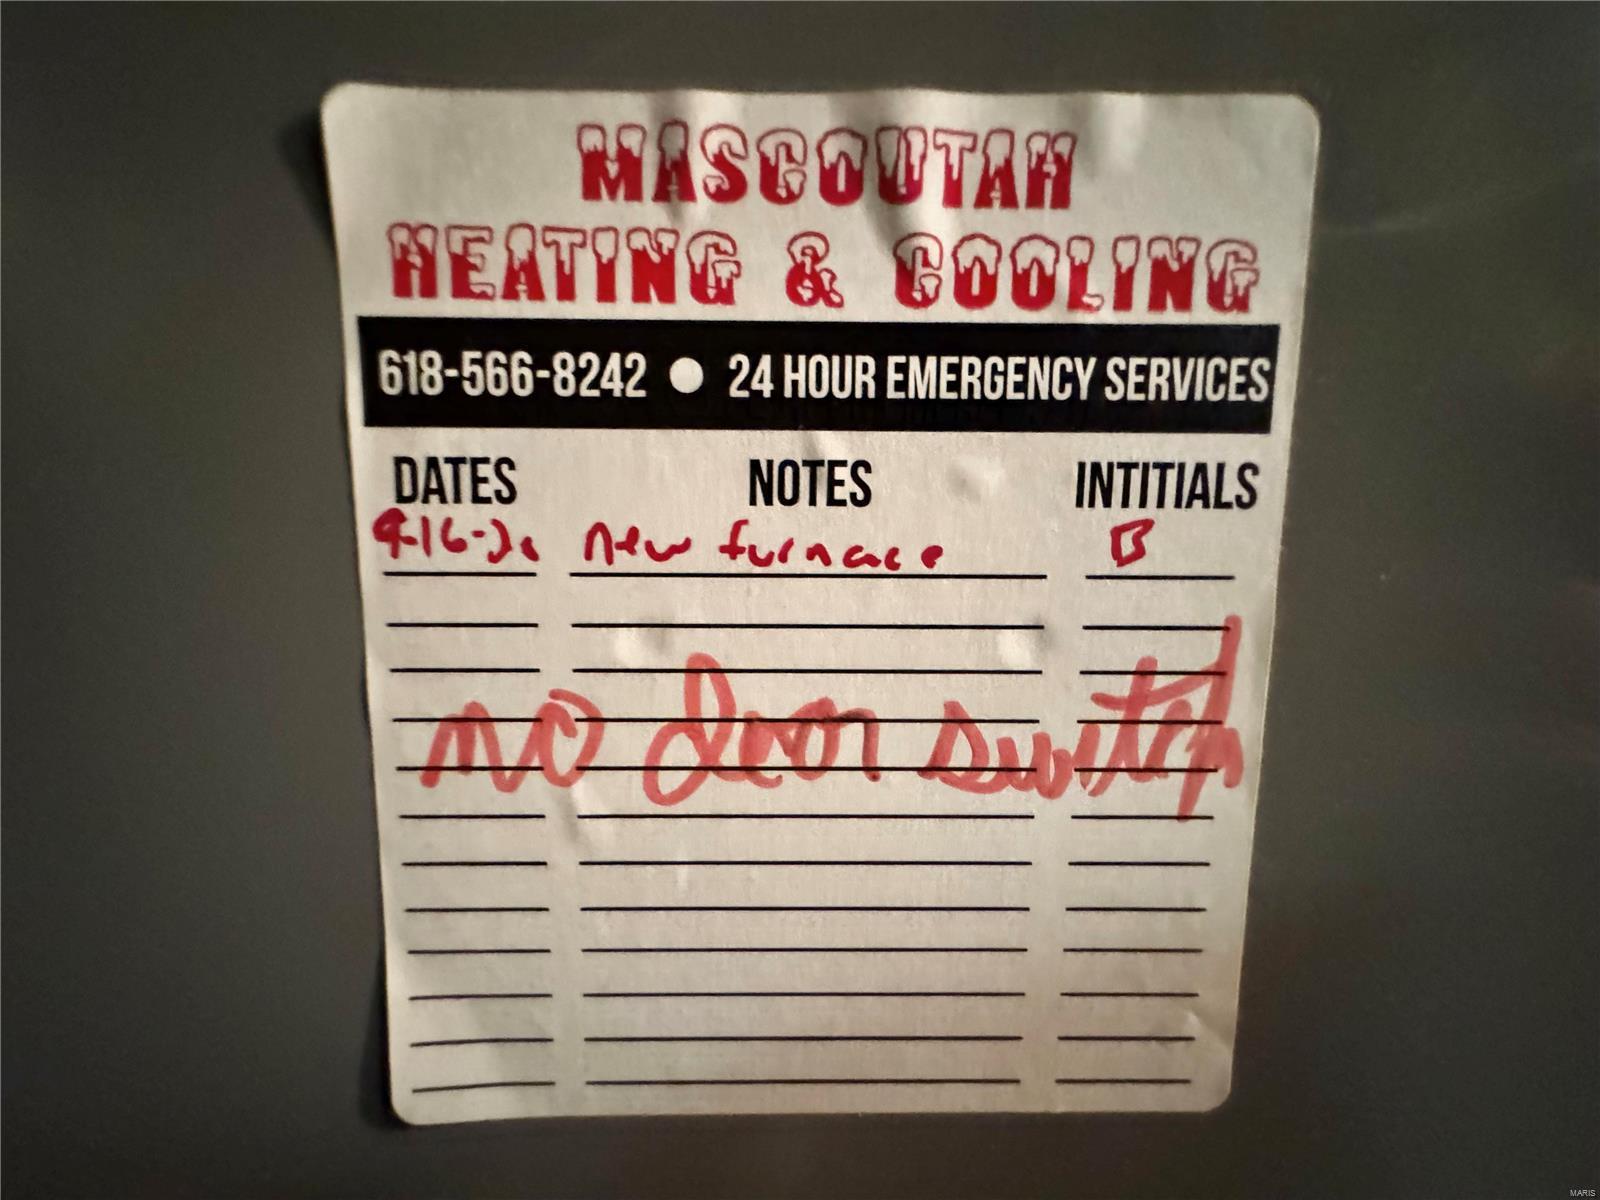 MASCOUTAH
HEATING & COOLING
618-566-8242 ● 24 HOUR EMERGENCY SERVICES
DATES NOTES INTITIALS
new furnace B
no door switch
MARIS